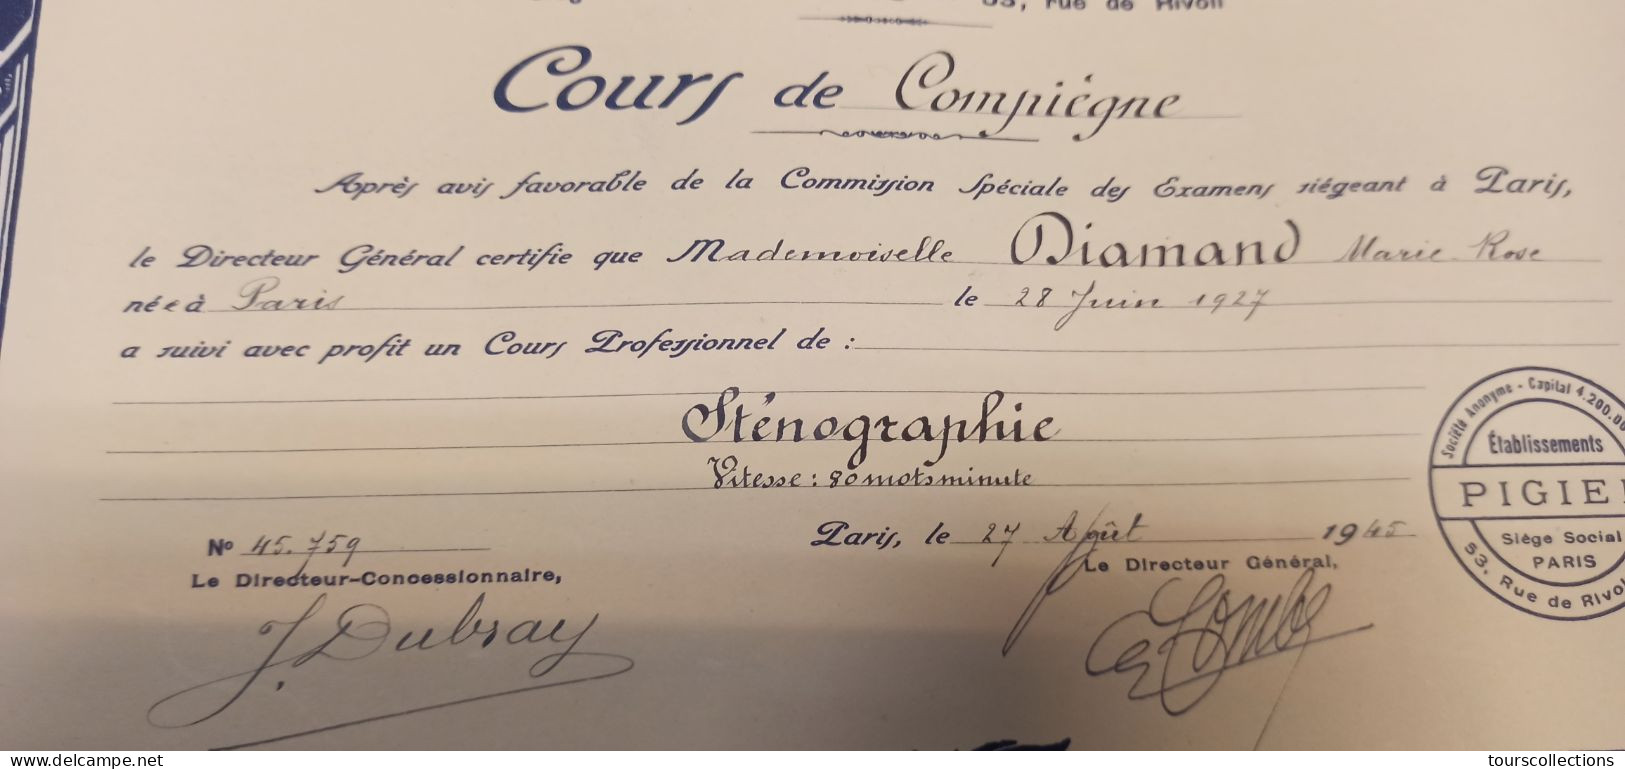 53, rue de Rivoli
Cours de Compiégne
Après avis favorable de la Commission Spéciale des Examens siégeant à Paris,
le Directeur Général certifie que Mademoiselle Diamand Marie-Rose
née à Paris le 28 Juin 1927
a suivi avec profit un Cours Professionnel de :
Sténographie
Vitesse : 80 mots minute
Paris, le 27 Août 1945
Nº 45.759
Le Directeur-Concessionnaire,
Le Directeur Général,
J. Dubray
Société Anonyme - Capital 4.200.00
Établissements
PIGIE
Siège Social
PARIS
53, Rue de Rivo
www.delcampe.net
tourscollections